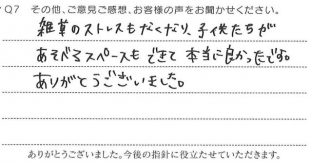 Q7 その他、ご意見ご感想、お客様の声をお聞かせください。
雑草のストレスもなくなり、子供たちが
あそべるスペースもできて本当に良かったです。
ありがとうございました。
ありがとうございました。今後の指針に役立たせていただきます。